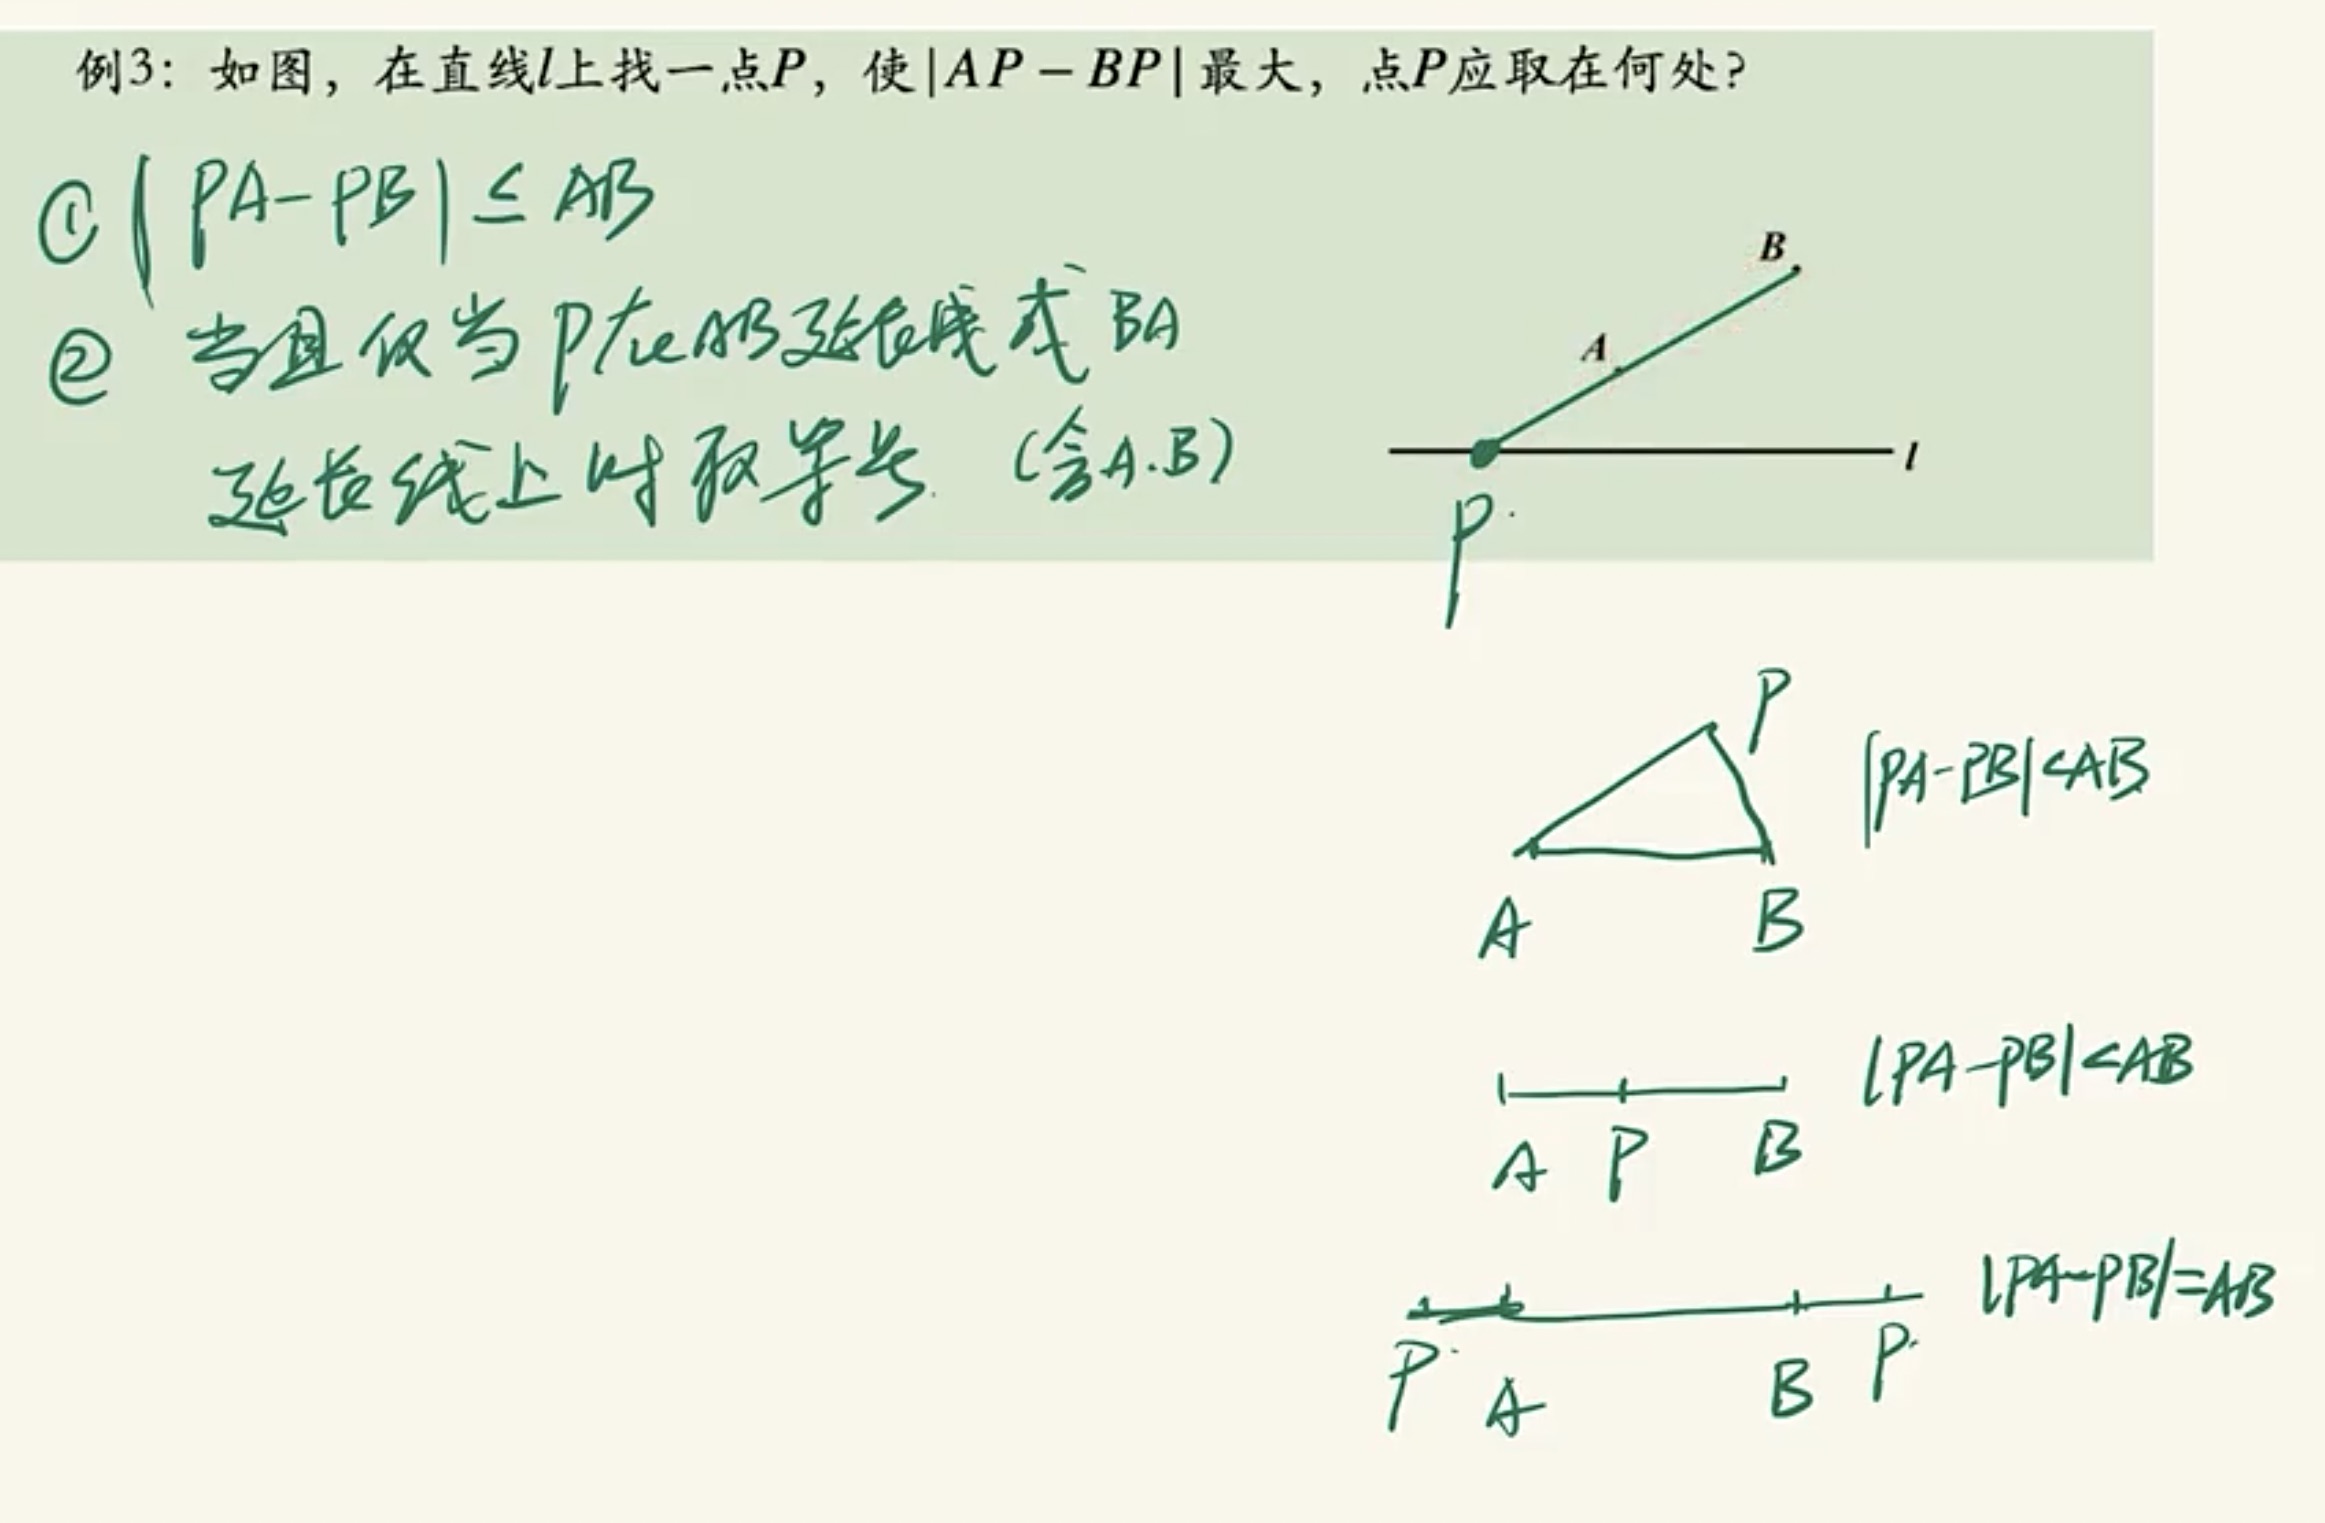 例3：如图，在直线l上找一点P，使|AP－BP|最大，点P应取在何处？
① |PA-PB|≤AB
② 当且仅当P在AB延长线或BA
延长线上时取等号.（含A.B）
B
A
l
P
P
|PA-PB|<AB
A B
|PA-PB|<AB
A P B
|PA-PB|=AB
P A B P